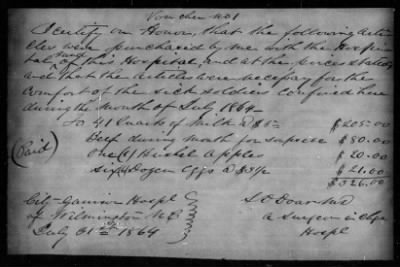 Voucher No 1
I certify on Honor, that the following Arti
cles were purchased by me with the Hospi
tal fund of this Hospital and at the prices stated
and that the articles were necessary for the
comfort of the sick soldiers confined here
during the Month of July 1864
To 41 Quarts of Milk @ $5= $205.00
Beef during month for $80.00
One (1) Bushel Apples $20.00
Six (6) Dozen Eggs @ $3½ $21.00
$326.00
(Paid)
City-Garrison Hospl
of Wilmington N.C.
July 31st 1864
a Surgeon in chge
Hospl